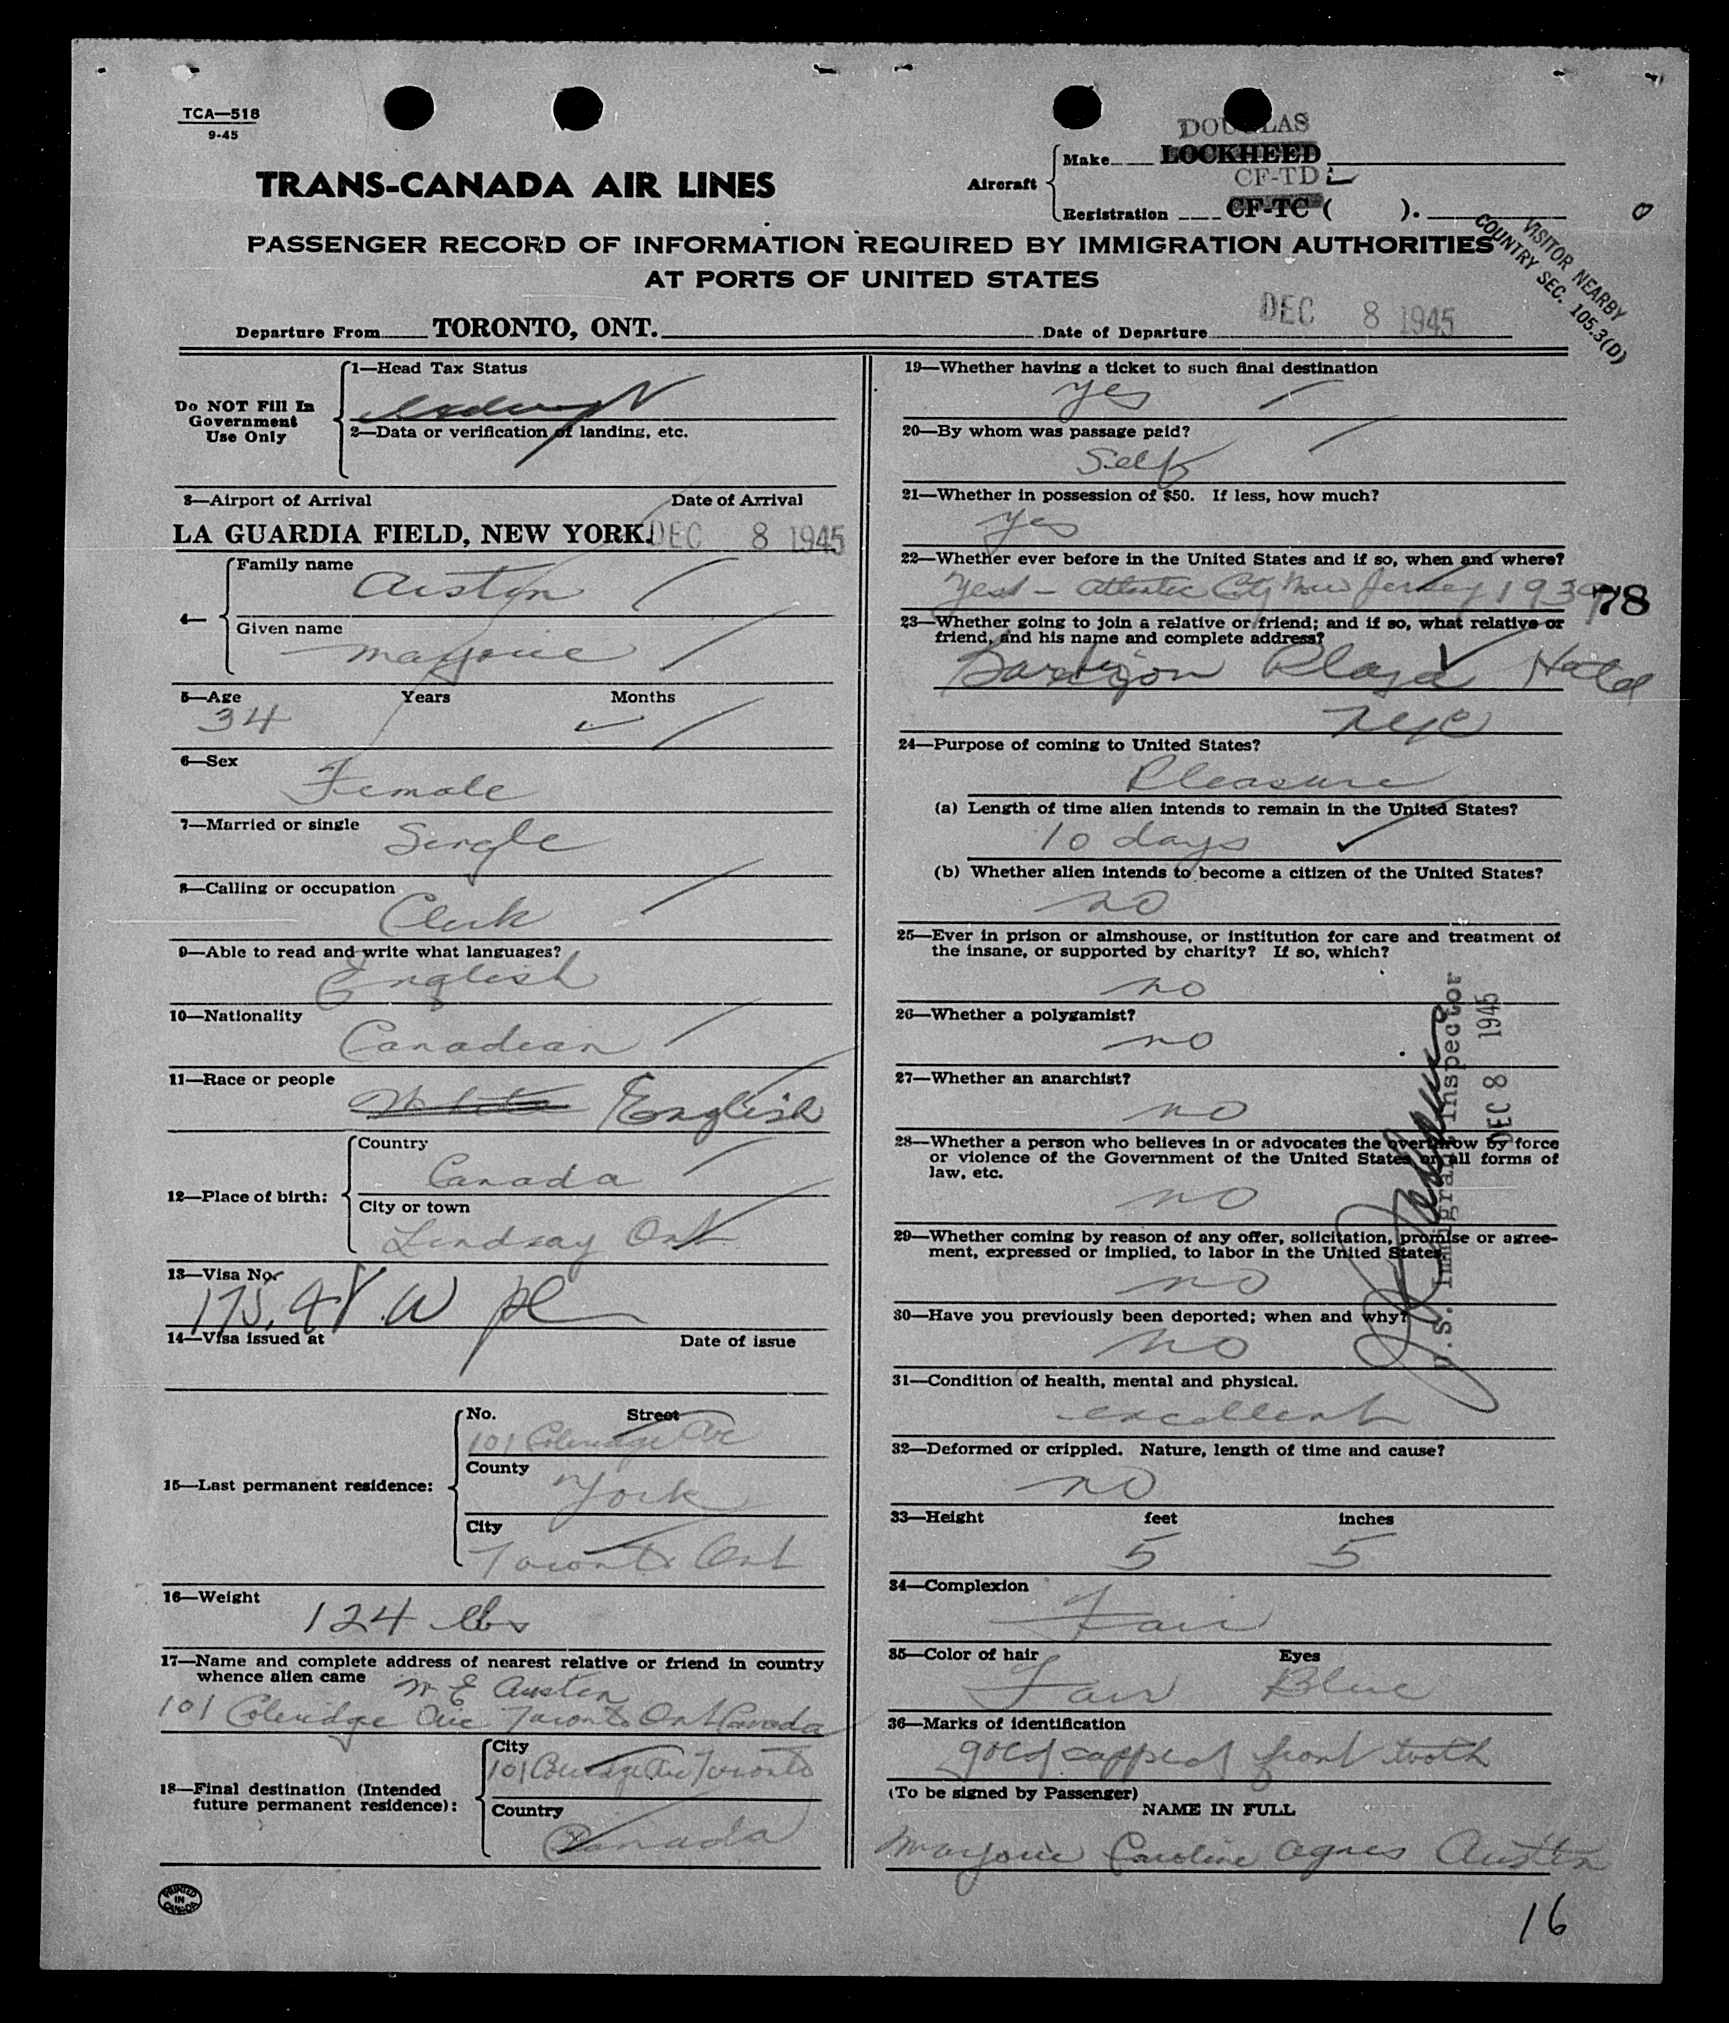 TCA—518
9-45
DOUGLAS
Make LOCKHEED
TRANS-CANADA AIR LINES
Aircraft
CF-TD L
Registration CF-TC ( ).
VISITOR NEARBY
COUNTRY SEC. 105.3(D)
PASSENGER RECORD OF INFORMATION REQUIRED BY IMMIGRATION AUTHORITIES
AT PORTS OF UNITED STATES
Departure From TORONTO, ONT. Date of Departure DEC 8 1945
Do NOT Fill In
Government
Use Only
1—Head Tax Status
2—Data or verification of landing, etc.
3—Airport of Arrival Date of Arrival
LA GUARDIA FIELD, NEW YORK. DEC 8 1945
4—
Family name
Austin
Given name
Marjorie
5—Age Years Months
34
6—Sex
Female
7—Married or single
Single
8—Calling or occupation
Clerk
9—Able to read and write what languages?
English
10—Nationality
Canadian
11—Race or people
White English
12—Place of birth:
Country
Canada
City or town
Lindsay Ont
13—Visa No.
14—Visa issued at Date of issue
15—Last permanent residence:
No. Street
101 Coleridge Ave
County
York
City
Toronto Ont
16—Weight
124 lbs
17—Name and complete address of nearest relative or friend in country
whence alien came
W E Austin
101 Coleridge Ave Toronto Ont Canada
18—Final destination (Intended
future permanent residence):
City
101 Coleridge Ave Toronto
Country
Canada
PRINTED
IN
CANADA
19—Whether having a ticket to such final destination
yes
20—By whom was passage paid?
Self
21—Whether in possession of $50. If less, how much?
yes
22—Whether ever before in the United States and if so, when and where?
Yes – Atlantic City New Jersey 1939
78
23—Whether going to join a relative or friend; and if so, what relative or
friend, and his name and complete address?
Barbizon Plaza Hotel
NYC
24—Purpose of coming to United States?
Pleasure
(a) Length of time alien intends to remain in the United States?
10 days
(b) Whether alien intends to become a citizen of the United States?
no
25—Ever in prison or almshouse, or institution for care and treatment of
the insane, or supported by charity? If so, which?
no
26—Whether a polygamist?
no
27—Whether an anarchist?
no
28—Whether a person who believes in or advocates the overthrow by force
or violence of the Government of the United States or all forms of
law, etc.
no
29—Whether coming by reason of any offer, solicitation, promise or agree-
ment, expressed or implied, to labor in the United States
no
30—Have you previously been deported; when and why?
no
U.S. Immigrant Inspector
DEC 8 1945
31—Condition of health, mental and physical.
excellent
32—Deformed or crippled. Nature, length of time and cause?
no
33—Height feet inches
5 5
34—Complexion
Fair
35—Color of hair Eyes
Fair Blue
36—Marks of identification
gold capped front tooth
(To be signed by Passenger)
NAME IN FULL
Marjorie Caroline Agnes Austin
16